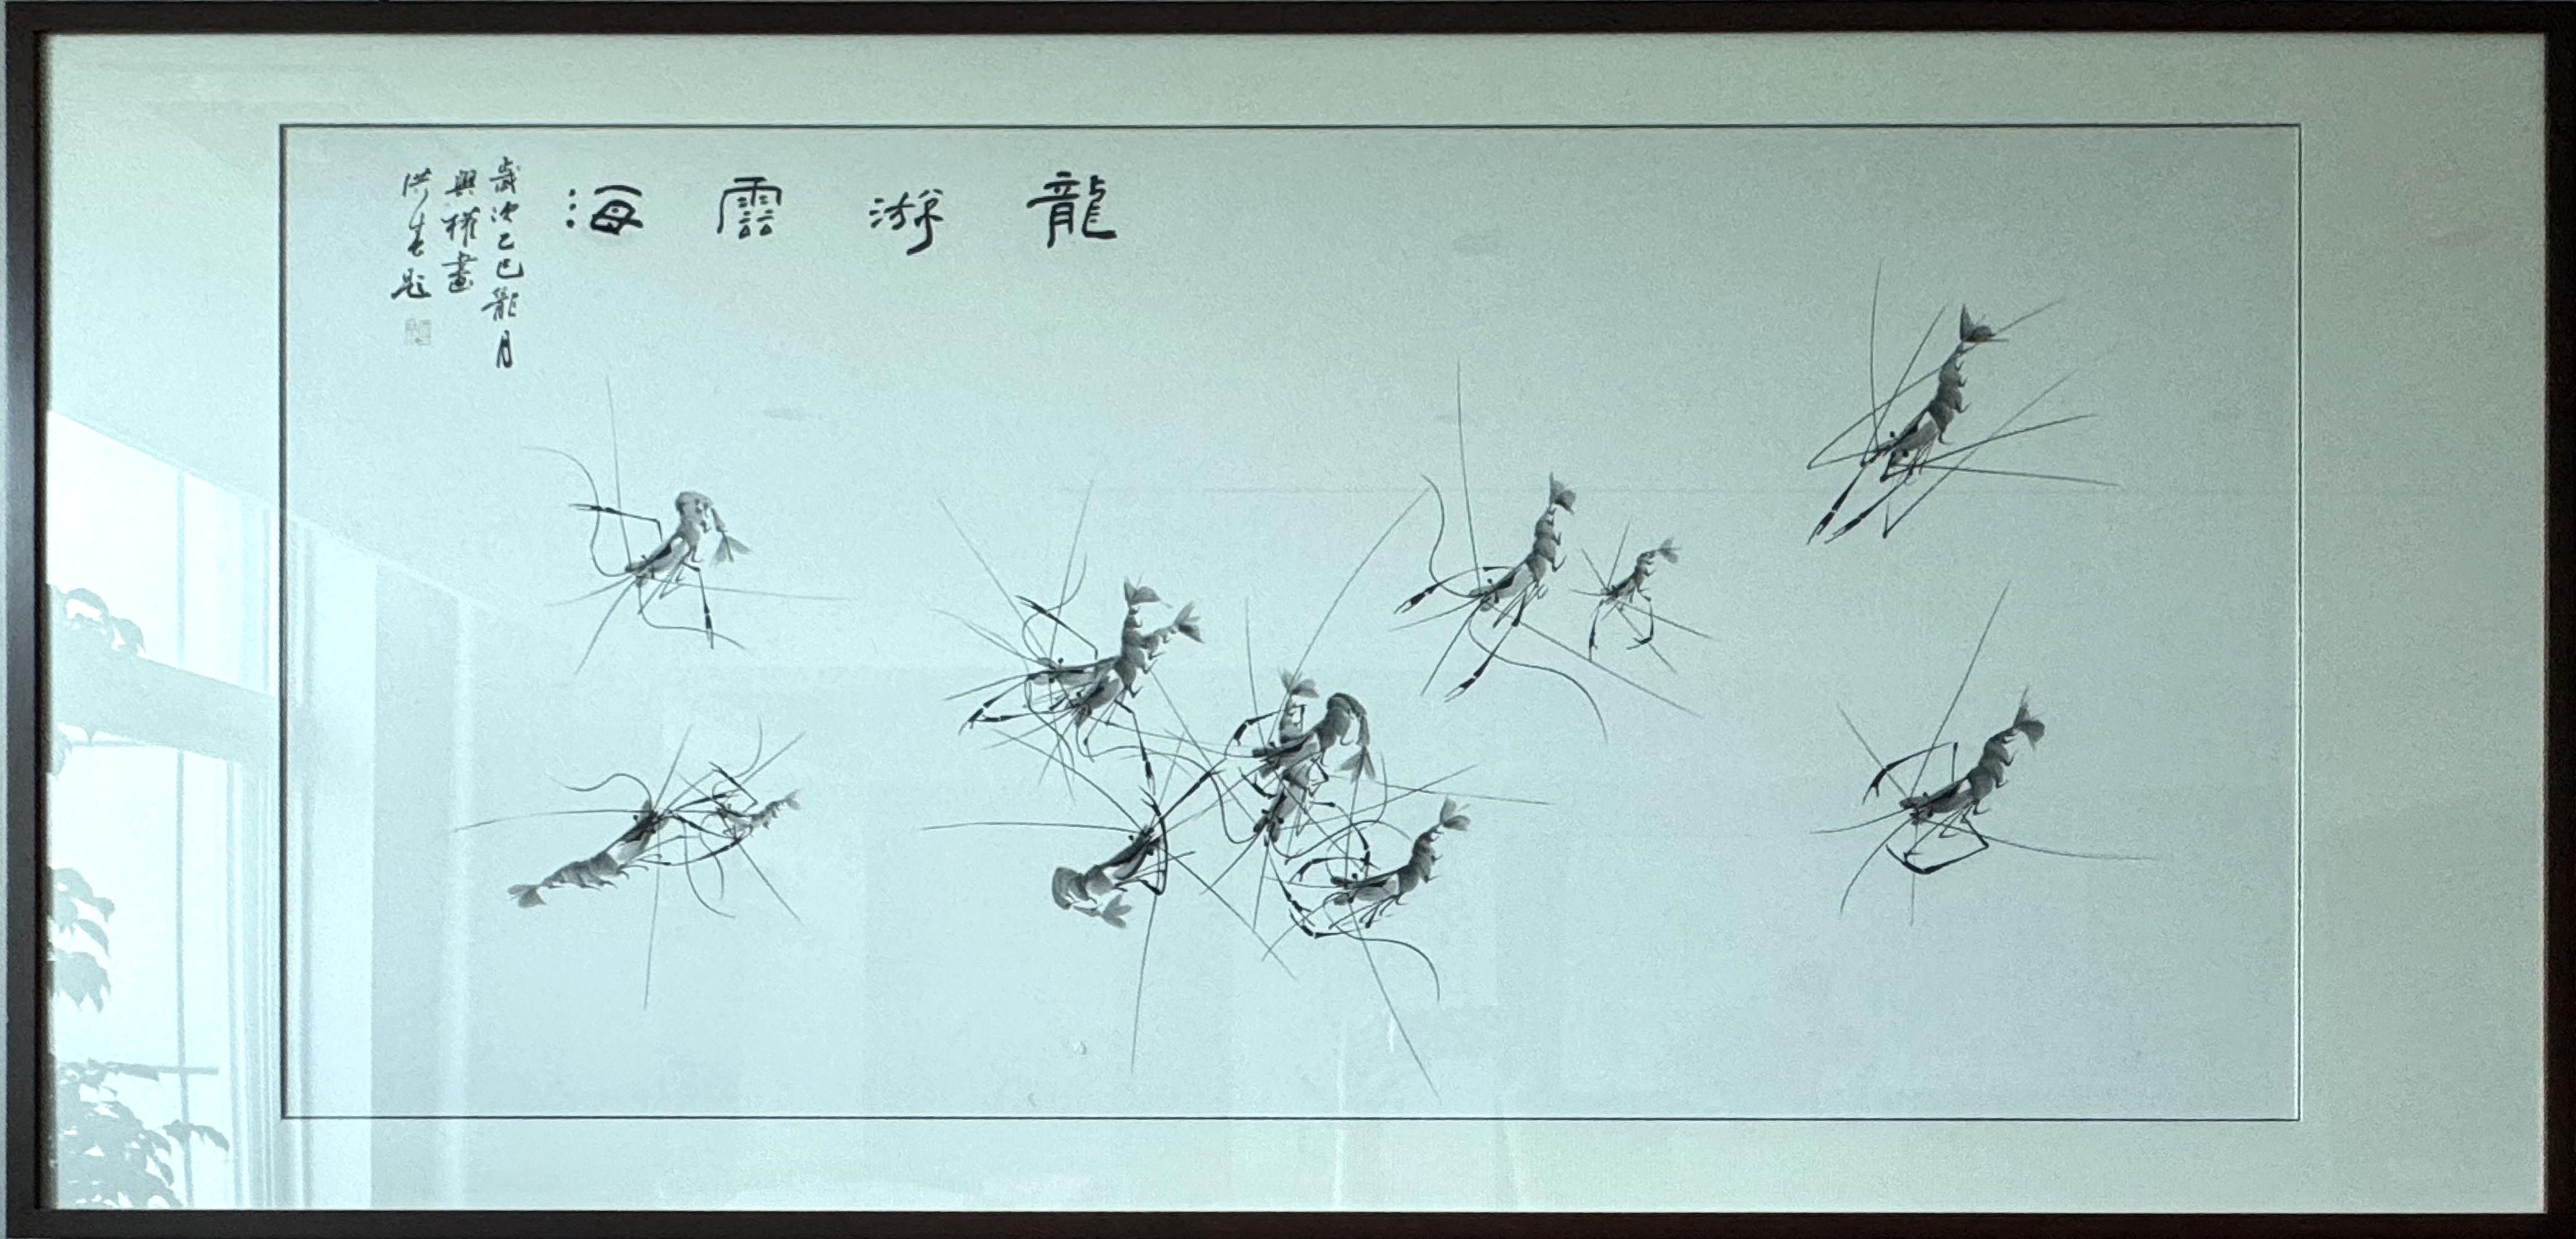 龍游雲海
歲次乙巳龍月
興權畫
洪生題